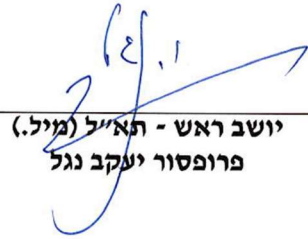 יושב ראש - תא״ל (מיל.)
פרופסור יעקב נגל